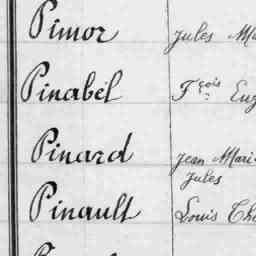 Pimor Jules
Pinabel Fçois
Pinard Jean Marie
Jules
Pinault Louis